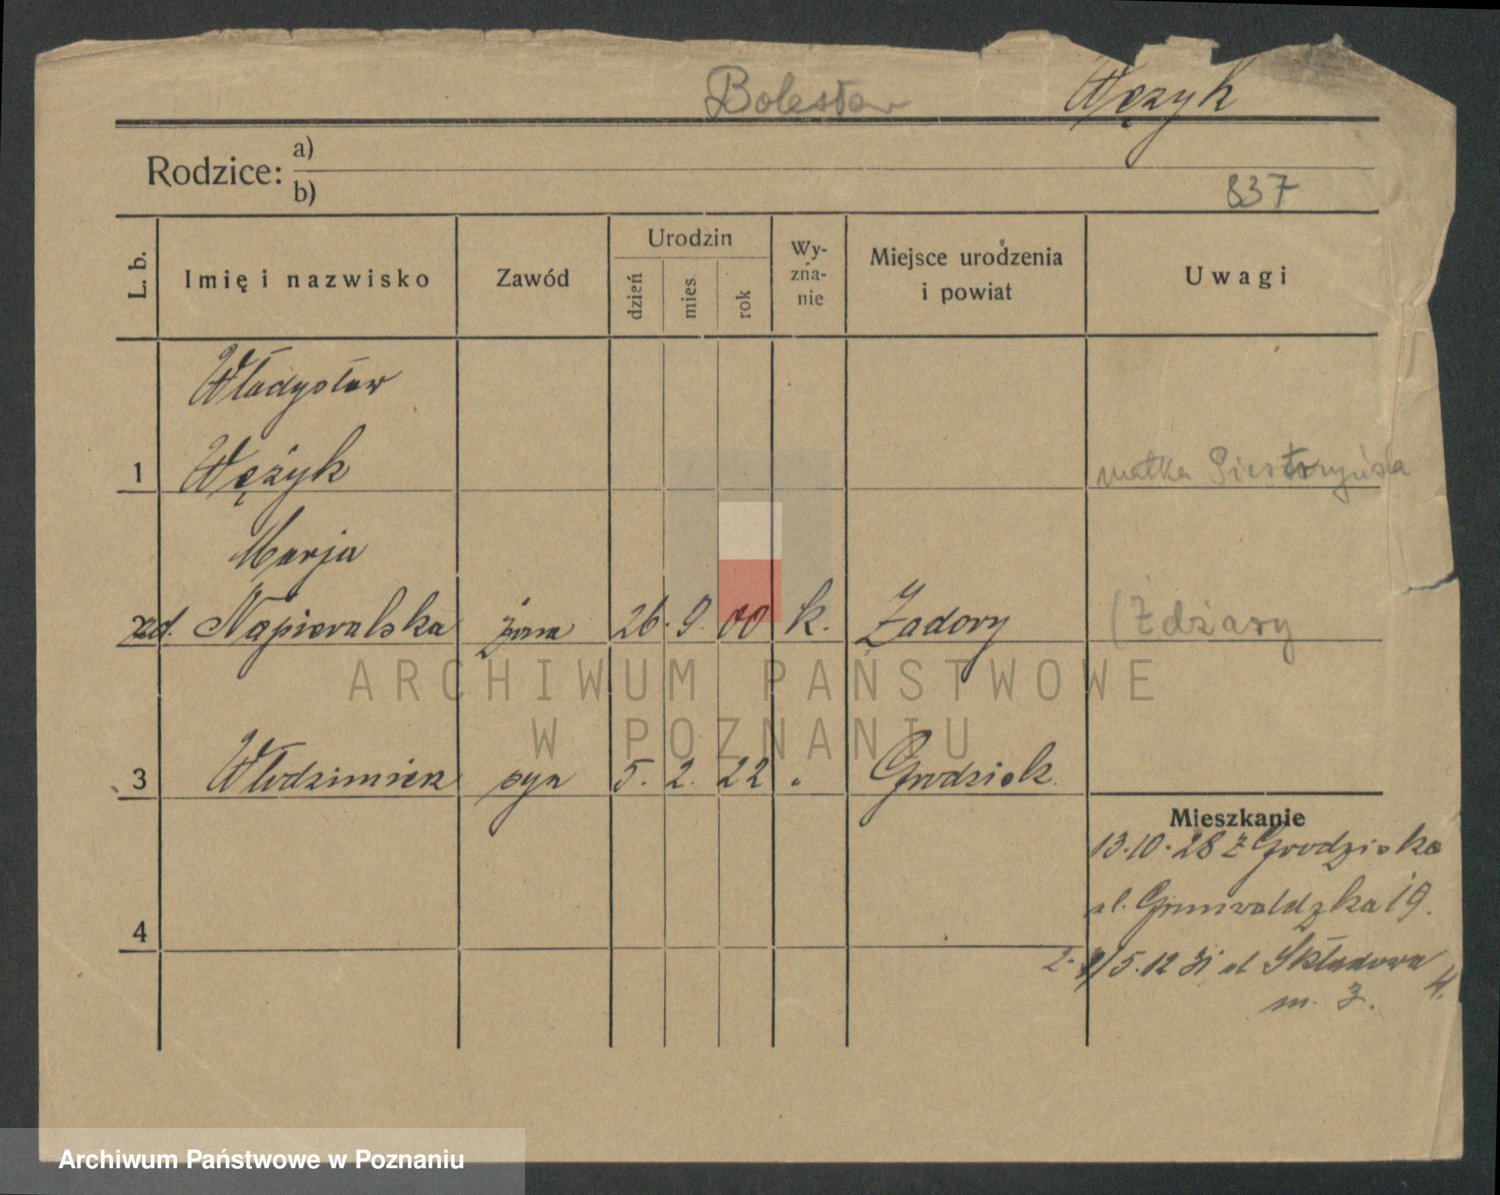 Bolesław Wężyk
Rodzice: a)
b)
837
L. b. Imię i nazwisko Zawód Urodzin dzień mies. rok Wy-zna-nie Miejsce urodzenia i powiat Uwagi
Władysław
1 Wężyk matka
Marja
2 zd. Napieralska żona 26. 9. 00 k. Zadory (Żdżary
3 Włodzimierz syn 5. 2. 22 " Grodzisk
Mieszkanie
13.10.28 z Grodziska
ul. Grunwaldzka 19.
5.12 31 ul Składowa 4.
m. 3.
4
ARCHIWUM PAŃSTWOWE
W POZNANIU
Archiwum Państwowe w Poznaniu